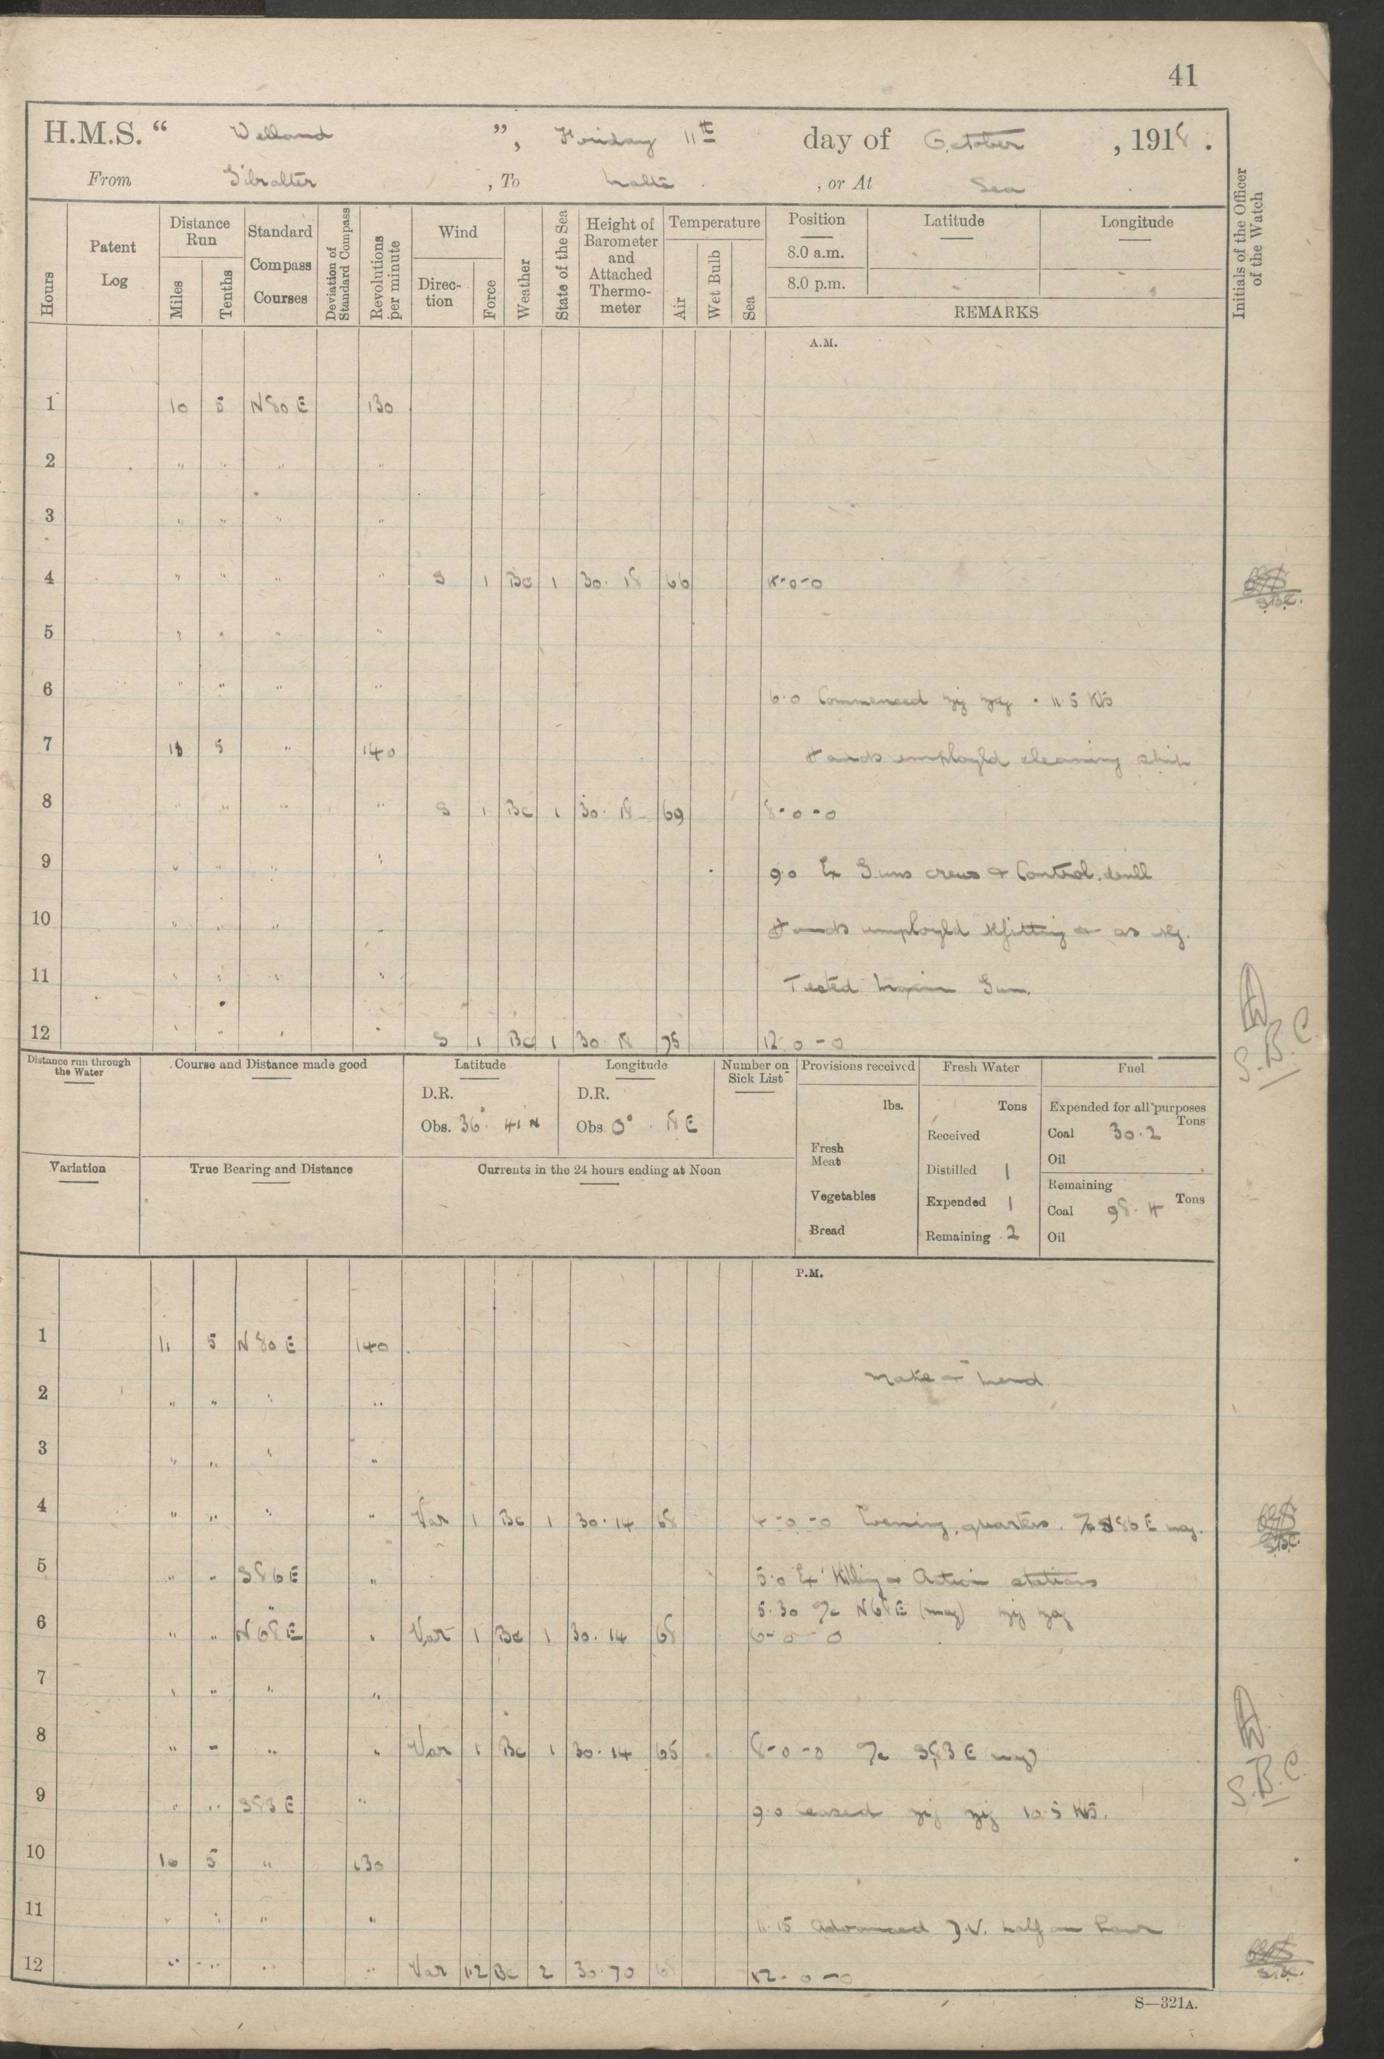 41
H.M.S. “ Welland ”, Friday 11th day of October , 1918 .
From Gibralter , To Malta , or At Sea
Hours
Patent Log
Distance Run
Miles
Tenths
Standard Compass Courses
Deviation of Standard Compass
Revolutions per minute
Wind
Direction
Force
Weather
State of the Sea
Height of Barometer and Attached Thermometer
Temperature
Air
Wet Bulb
Sea
Position
8.0 a.m.
8.0 p.m.
Latitude
Longitude
REMARKS
Initials of the Officer of the Watch
A.M.
1 10 5 N 80 E 130
2 " " " "
3 " " " "
4 " " " " S 1 Bc 1 30. 18 66 4-0-0
5 " " " "
6 " " " " 6.0 Commenced zig zag . 11.5 Kts
7 11 5 " 140 Hands employld cleaning ship
8 " " " " S 1 Bc 1 30. 18 69 8-0-0
9 " " " " 9.0 Ex Guns crews & Control drill
10 " " " " Hands employld refitting & as req.
11 " " " " Tested Main Gun.
12 " " " " S 1 Bc 1 30 18 75 12-0-0
S.B.C.
Distance run through the Water
Course and Distance made good
Latitude
D.R.
Obs. 36° 41 N
Longitude
D.R.
Obs. 0° . 18 E
Number on Sick List
Provisions received
lbs.
Fresh Meat
Vegetables
Bread
Fresh Water
Tons
Received
Distilled 1
Expended 1
Remaining 2
Fuel
Expended for all purposes
Tons
Coal 30.2
Oil
Remaining
Coal 98.4 Tons
Oil
Variation
True Bearing and Distance
Currents in the 24 hours ending at Noon
P.M.
1 11 5 N 80 E 140
Make & Mend
2 " " " "
3 " " " "
4 " " " " Var 1 Bc 1 30.14 68 4-0-0 Evening quarters. A/c S86E mag.
5 " " S86E " 5.0 Ex Action stations
5.30 A/c N68E (mag) zig zag
6 " " N68E " Var 1 Bc 1 30.14 68 6-0-0
7 " " " "
8 " " " " Var 1 Bc 1 30.14 65 8-0-0 A/c S83E mag
S.B.C.
9 " " S83E " 9.0 ceased zig zig 10.5 Kts.
10 10 5 " 130
11 " " " " 11.15 Advanced half an hour
12 " " " " Var 1.2 Bc 2 30.70 68 12-0-0
S—321A.